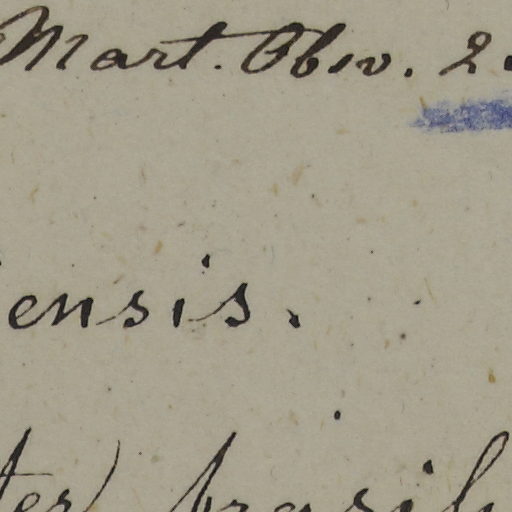 Mart. Obsv. 2.
iensis.
ter) brasil